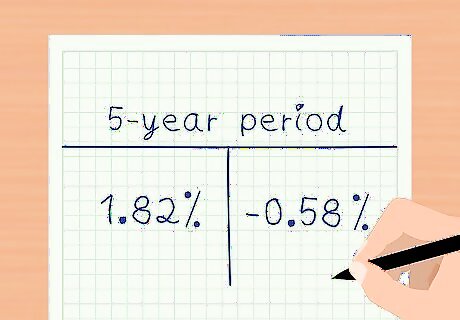 5-year period
1.82% -0.58%